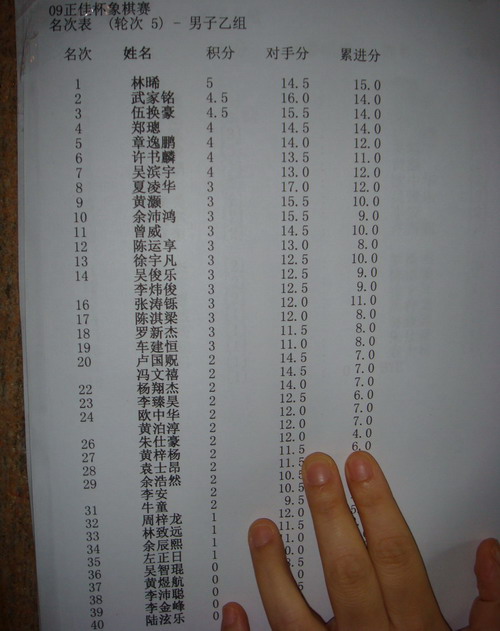 09正佳杯象棋赛
名次表 (轮次 5) - 男子乙组
名次 姓名 积分 对手分 累进分
1 林晞 5 14.5 15.0
2 武家铭 4.5 16.0 14.0
3 伍换豪 4.5 15.5 14.0
4 郑璁 4 14.5 14.0
5 章逸鹏 4 14.0 12.0
6 许书麟 4 13.5 11.0
7 吴滨宇 4 13.0 12.0
8 夏凌华 3 17.0 12.0
9 黄灏 3 15.5 10.0
10 余沛鸿 3 15.5 9.0
11 曾威 3 14.5 10.0
12 陈运享 3 13.0 8.0
13 徐宇凡 3 12.5 10.0
14 吴俊乐 3 12.5 9.0
李炜俊 3 12.5 9.0
16 张涛铄 3 12.0 11.0
17 陈淇梁 3 12.0 8.0
18 罗新杰 3 11.5 8.0
19 车建恒 3 11.0 8.0
20 卢国贶 2 14.5 7.0
冯文禧 2 14.5 7.0
22 杨翔杰 2 14.0 7.0
23 李臻昊 2 12.5 6.0
24 欧中华 2 12.0 7.0
黄泊淳 2 12.0 7.0
26 朱仕豪 2 12.0 4.0
27 黄梓杨 2 11.5 6.0
28 袁士昂 2 11.5
29 余浩然 2 10.5
李安 2 10.5
31 牛童 2 9.5
32 周梓龙 1 12.0
33 林致远 1 11.5
34 余辰熙 1
35 左正日 1
36 吴智琨 0
37 黄煜航 0
38 李沛聪 0
39 李金峰 0
40 陆泫乐 0